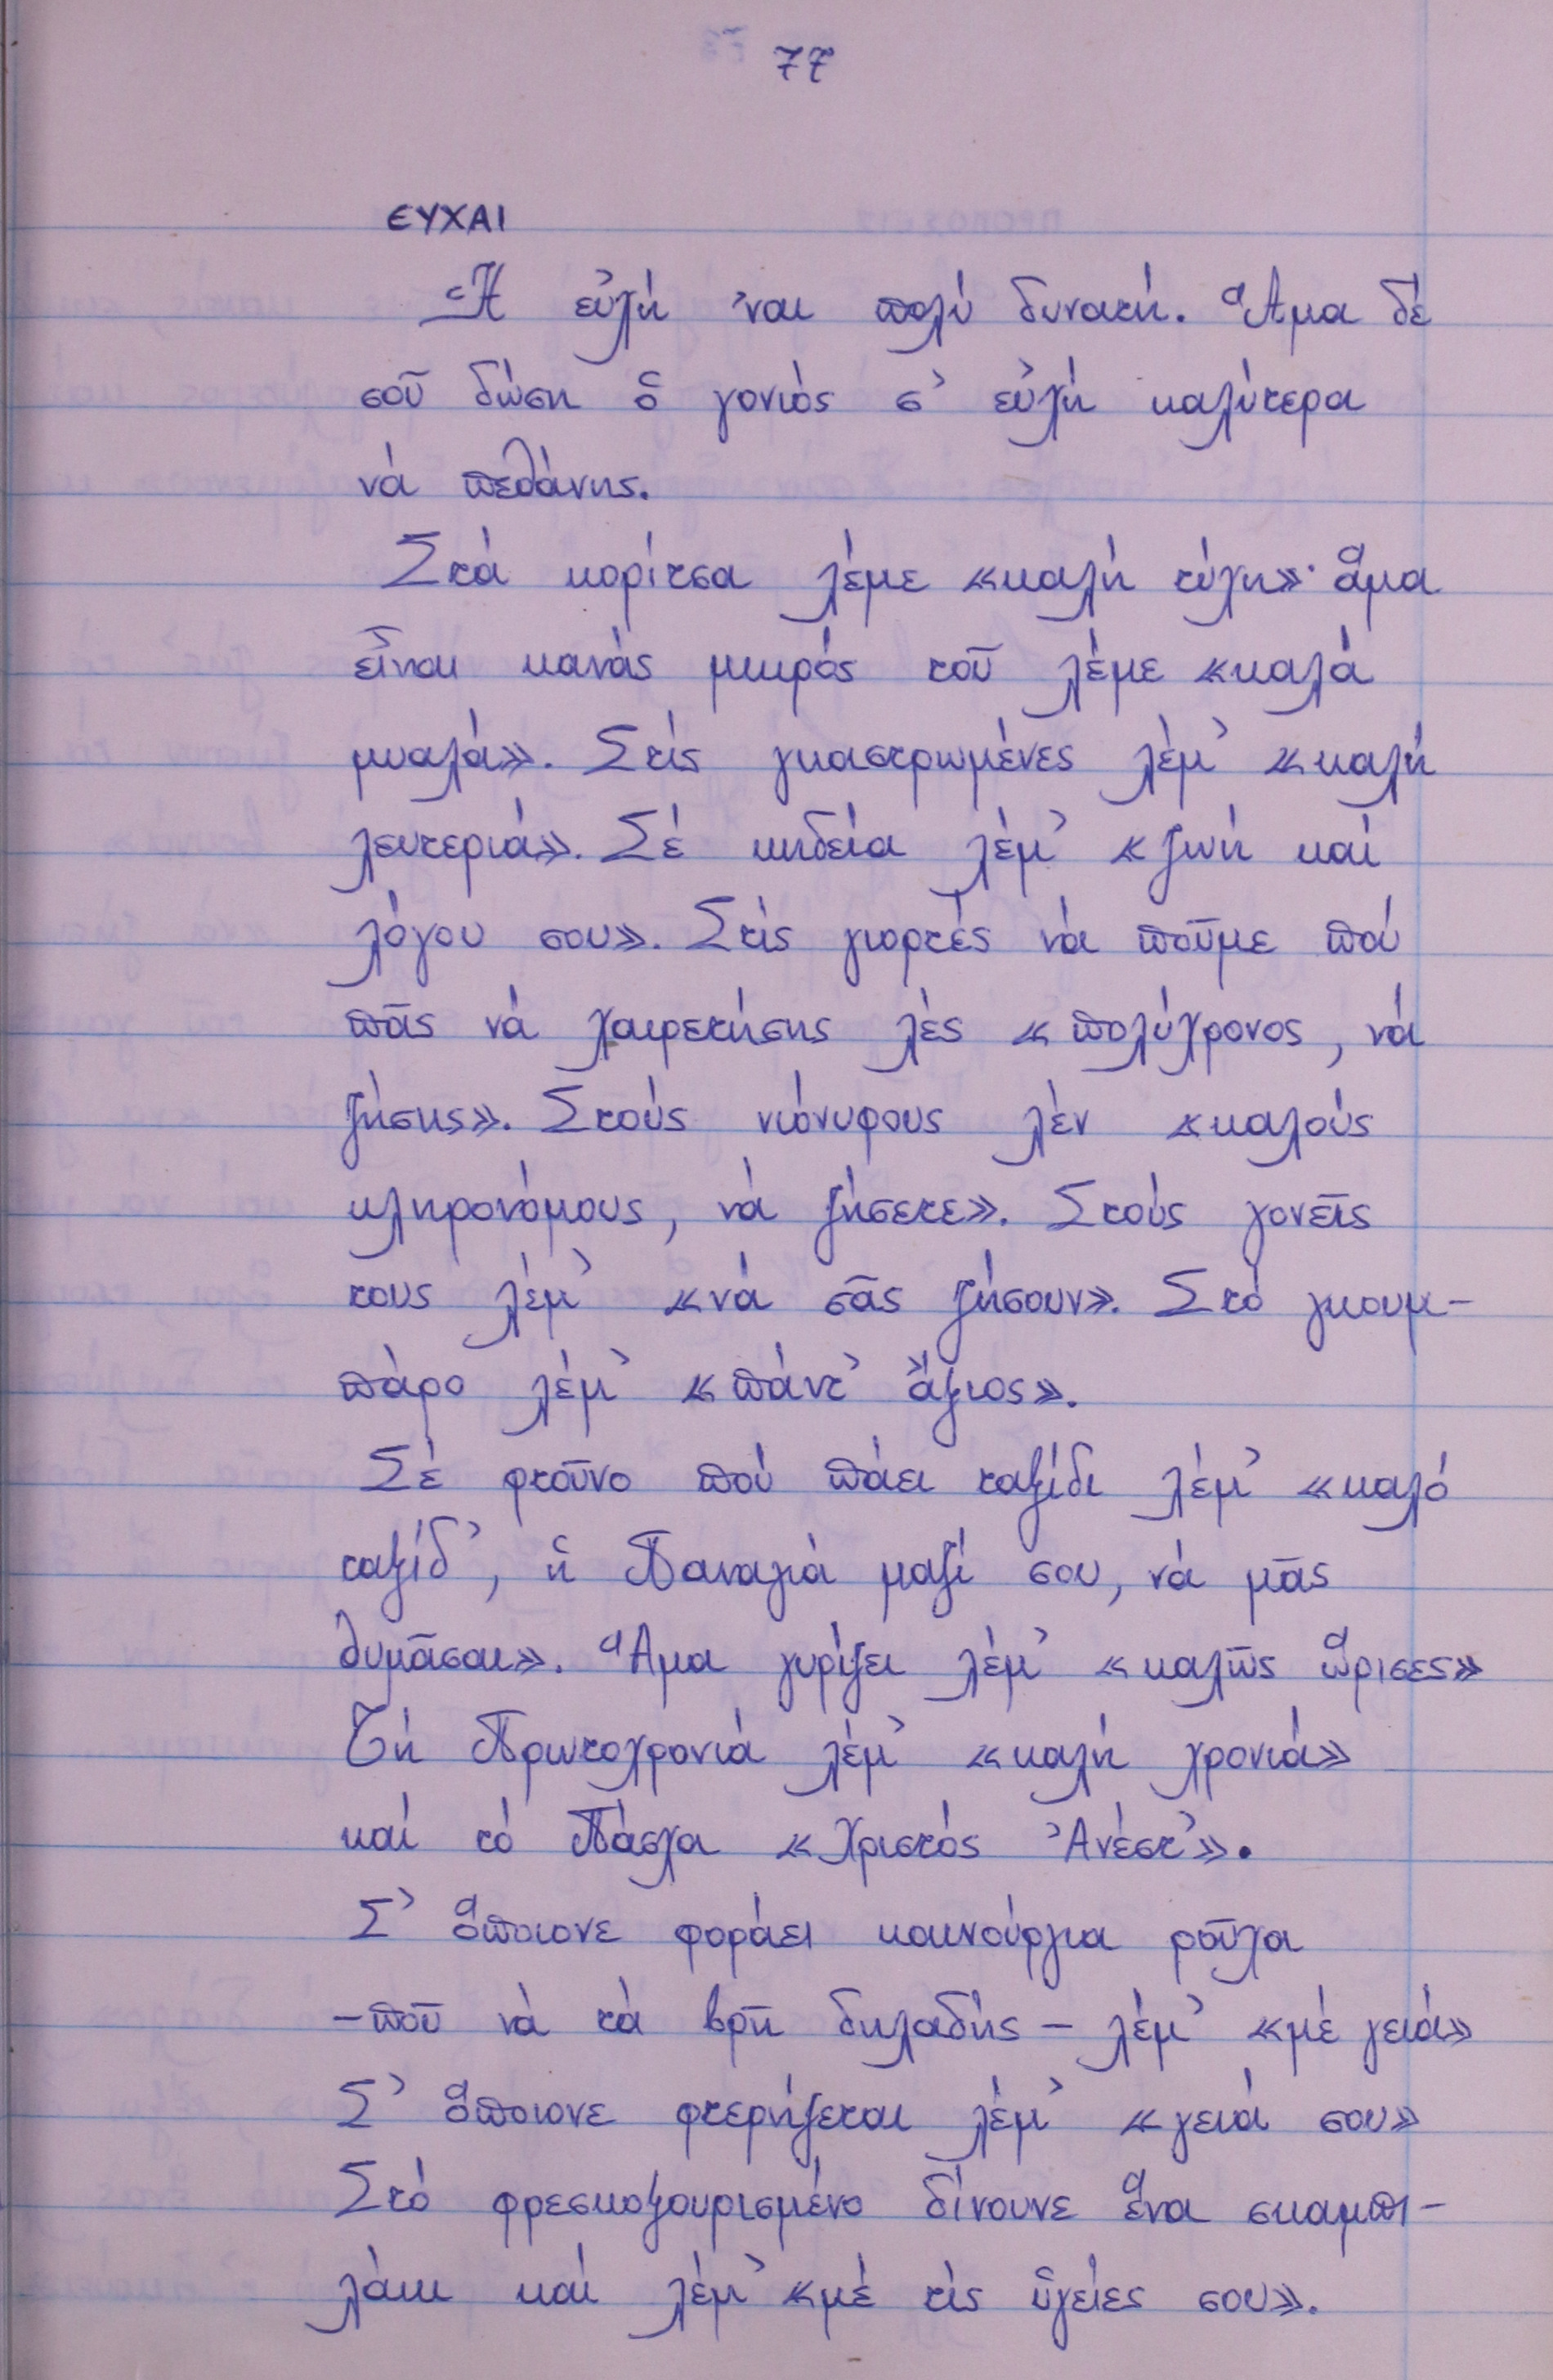 77
ΕΥΧΑΙ
Ἡ εὐχή 'ναι πολύ δυνατή. Ἅμα δέ
σοῦ δώση ὁ γονιός σ' εὐχή καλύτερα
νά πεθάνης.
Στά κορίτσα λέμε «καλή τύχη»· ἅμα
εἶναι κανάς μικρός τοῦ λέμε «καλά
μυαλά». Στίς γκαστρωμένες λέμ' «καλή
λευτεριά». Σέ κηδεία λέμ' «ζωή καί
λόγου σου». Στίς γιορτές νά ποῦμε πού
πᾶς νά χαιρετήσης λές «πολύχρονος, νά
ζήσης». Στούς νιόνυφους λέν «καλούς
κληρονόμους, νά ζήσετε». Στούς γονεῖς
τους λέμ' «νά σᾶς ζήσουν». Στό γκουμ-
πάρο λέμ' «πάντ' ἄξιος».
Σέ φτοῦνο πού πάει ταξίδι λέμ' «καλό
ταξίδ', ἡ Παναγιά μαζί σου, νά μᾶς
θυμᾶσαι». Ἅμα γυρίζει λέμ' «καλῶς ὥρισες»
Τή Πρωτοχρονιά λέμ' «καλή χρονιά»
καί τό Πάσχα «Χριστός Ἀνέστ'».
Σ' ὅποιονε φοράει καινούργια ροῦχα
-ποῦ νά τά βρῆ δηλαδής - λέμ' «μέ γειά»
Σ' ὅποιονε φτερνίζεται λέμ' «γειά σου»
Στό φρεσκοξουρισμένο δίνουνε ἕνα σκαμπι-
λάκι καί λέμ' «μέ τίς ὑγείες σου».